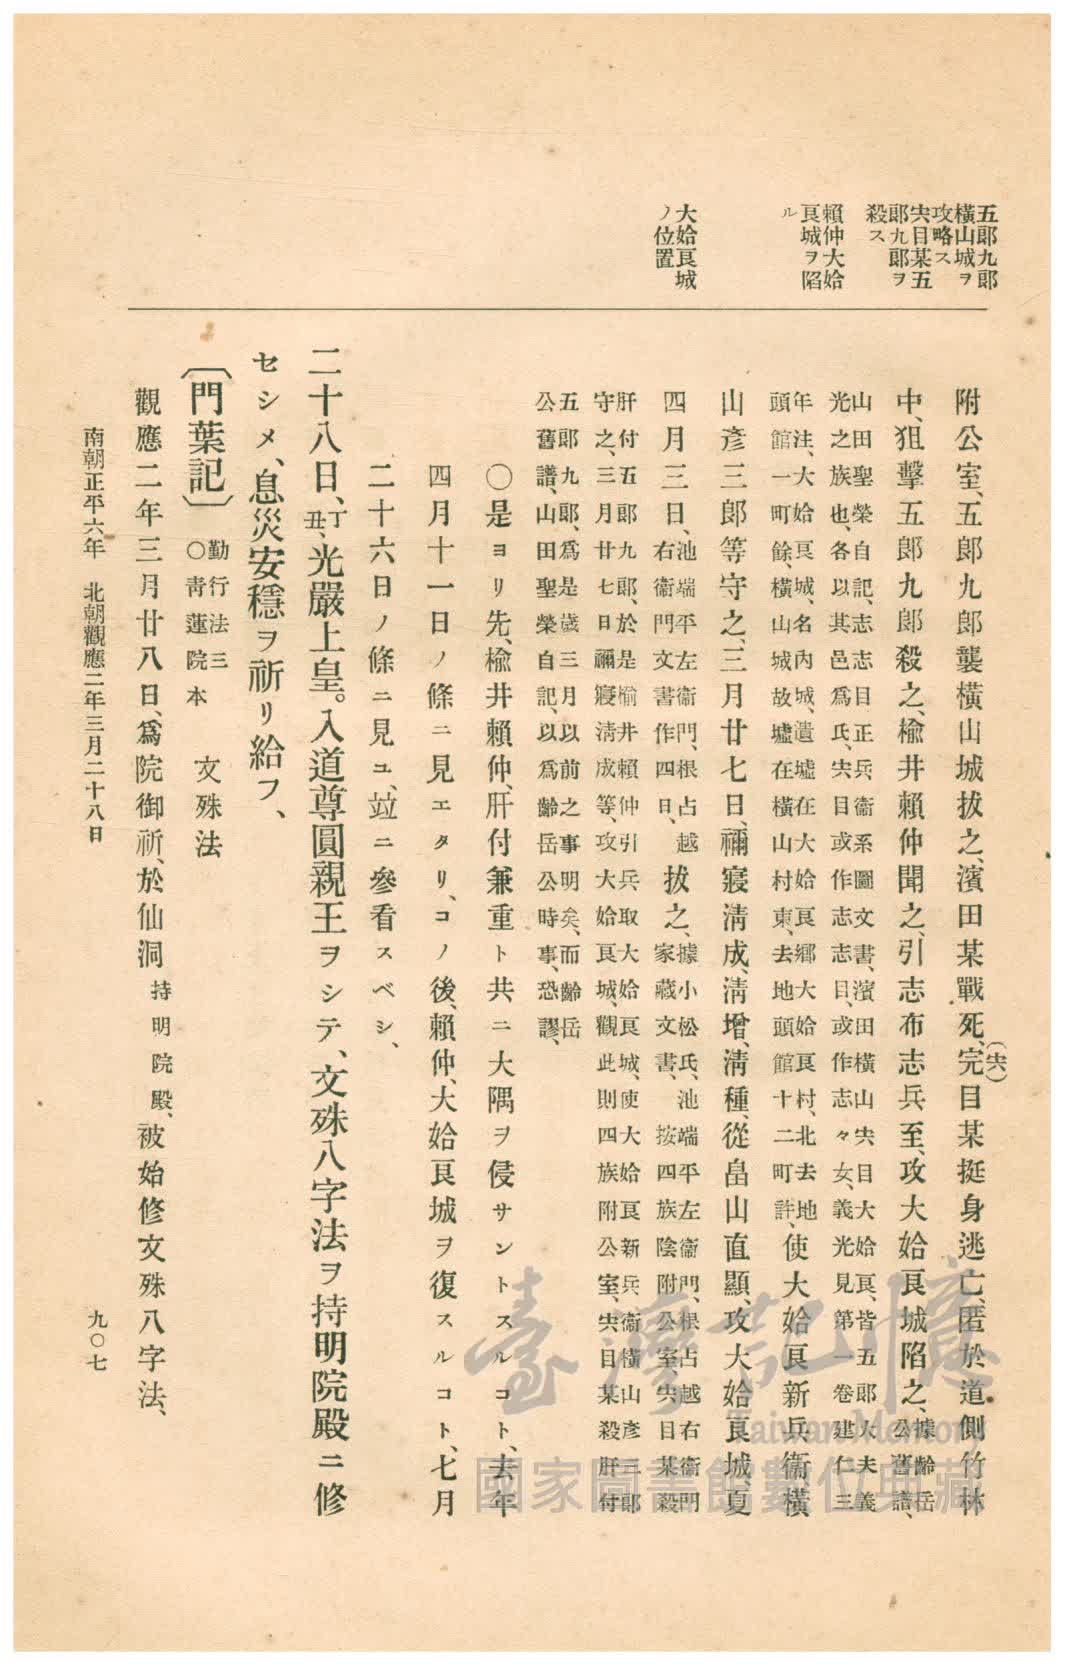 五郞九郞
橫山城ヲ
攻略ス
宍目某五
郞九郞ヲ
殺ス
賴仲大姶
良城ヲ陷
ル
大姶良城
ノ位置
附公室、五郞九郞襲橫山城拔之、濱田某戰死、完(宍)目某挺身逃亡、匿於道側竹林
中、狙擊五郞九郞殺之、楡井賴仲聞之、引志布志兵至、攻大姶良城陷之、據齡岳公舊譜、
山田聖榮自記、志志目正兵衞系圖文書、濱田橫山宍目大姶良、皆五郞大夫義
光之族也、各以其邑爲氏、宍目或作志志目、或作志々女、義光見第一卷建仁三
年注、大姶良城、名內城、遺墟在大姶良鄕大姶良村、北去地
頭館一町餘、橫山城故墟在橫山村東、去地頭館十二町許、使大姶良新兵衞橫
山彥三郞等守之、三月廿七日、禰寢淸成、淸增、淸種、從畠山直顯、攻大姶良城、夏
四月三日、池端平左衞門、根占越右衞門文書作四日、拔之、據小松氏、池端平左衞門、根占越右衞門家藏文書、按四族陰附公室、宍目某殺
肝付五郞九郞、於是楡井賴仲引兵取大姶良城、使大姶良新兵衞橫山彥三郞
守之、三月廿七日禰寢淸成等、攻大姶良城、觀此則四族附公室、宍目某殺肝付
五郞九郞、爲是歲三月以前之事明矣、而齡岳
公舊譜、山田聖榮自記、以爲齡岳公時事、恐謬、
○是ヨリ先、楡井賴仲、肝付兼重ト共ニ大隅ヲ侵サントスルコト、去年
四月十一日ノ條ニ見エタリ、コノ後、賴仲、大姶良城ヲ復スルコト、七月
二十六日ノ條ニ見ユ、竝ニ參看スベシ、
二十八日、丁丑、光嚴上皇。入道尊圓親王ヲシテ、文殊八字法ヲ持明院殿ニ修
セシメ、息災安穩ヲ祈リ給フ、
〔門葉記〕勤行法三○靑蓮院本　文殊法
觀應二年三月廿八日、爲院御祈、於仙洞持明院殿、被始修文殊八字法、
南朝正平六年　北朝觀應二年三月二十八日
九〇七
臺灣記憶
Taiwan Memory
國家圖書館數位典藏